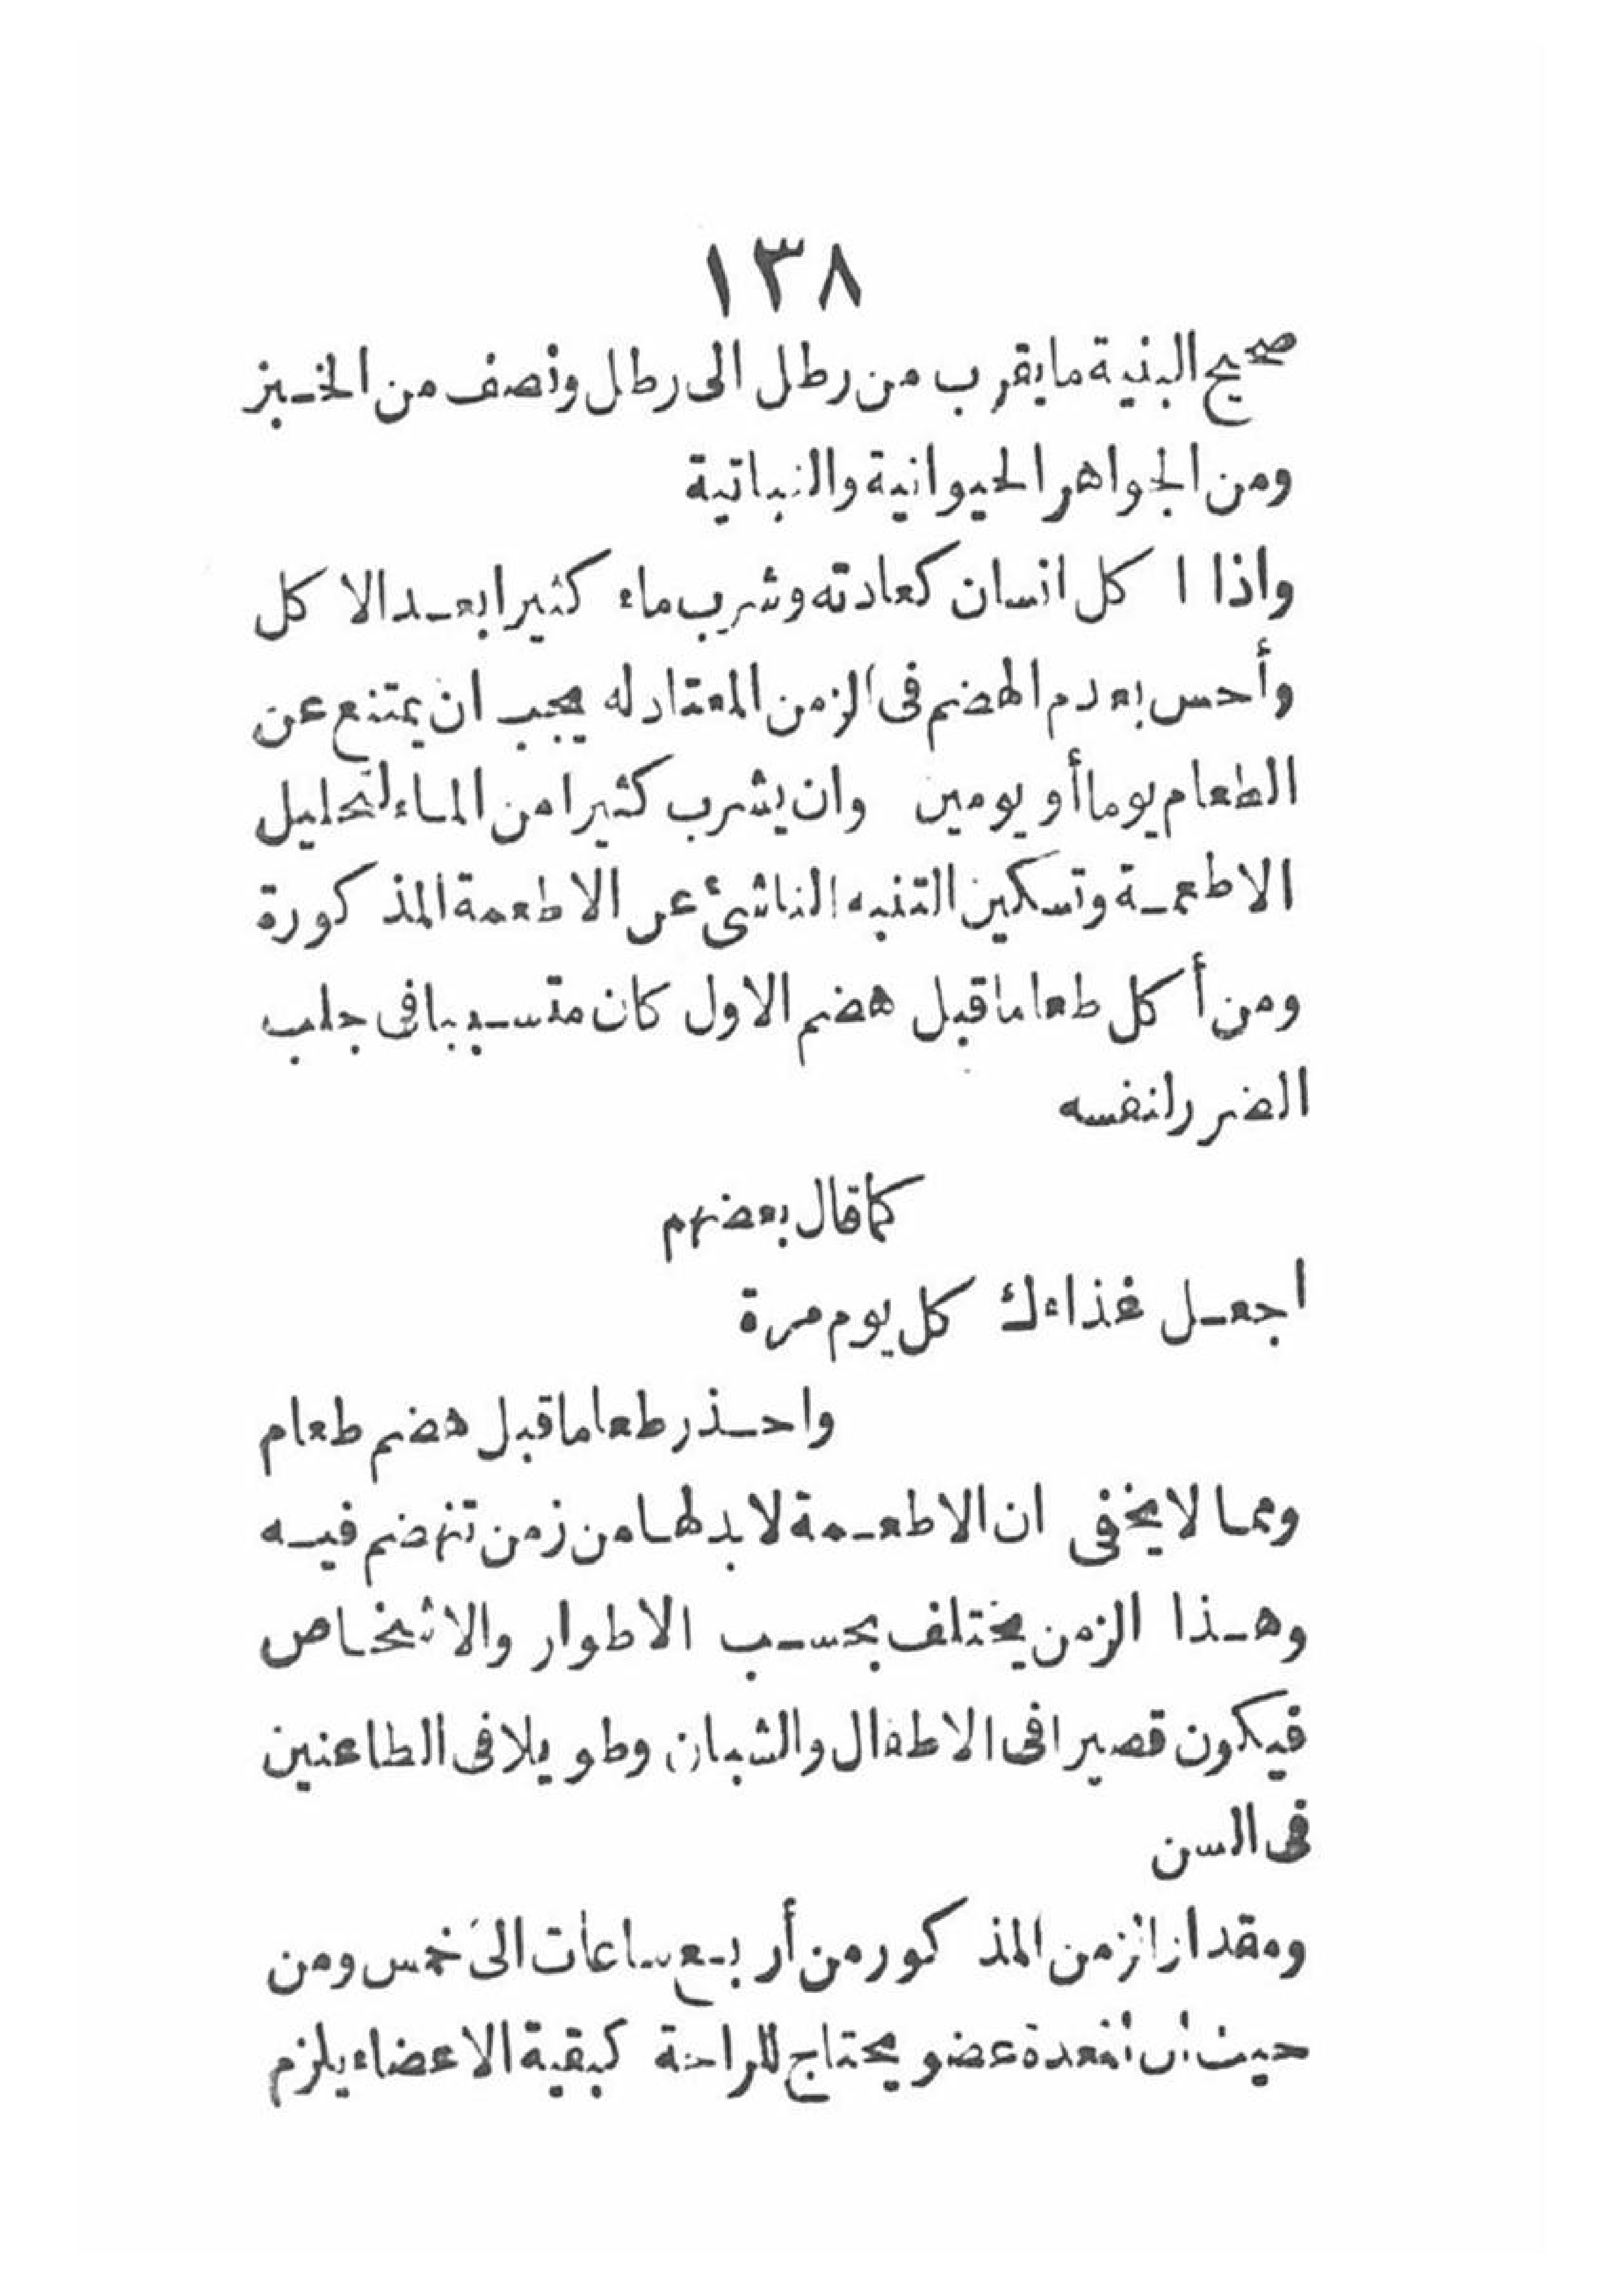 ١٣٨
صحيح البنية ما يقرب من رطل الى رطل ونصف من الخبز
ومن الجواهر الحيوانية والنباتية
واذا ا كل انسان كعادته وشرب ماء كثيرا بعد الا كل
وأحس بعدم الهضم فى الزمن المعتاد له يجب ان يمتنع عن
الطعام يوما أو يومين وان يشرب كثيرا من الماء لتحليل
الاطعمة وتسكين التنبه الناشئ عن الاطعمة المذ كورة
ومن أ كل طعاما قبل هضم الاول كان متسببا فى جلب
الضرر لنفسه
كما قال بعضهم
اجعل غذاءك كل يوم مرة
واحذر طعاما قبل هضم طعام
ومما لا يخفى ان الاطعمة لا بد لها من زمن تنهضم فيه
وهذا الزمن يختلف بحسب الاطوار والاشخاص
فيكون قصيرا فى الاطفال والشبان وطويلا فى الطاعنين
فى السن
ومقدار الزمن المذ كور من أربع ساعات الى خمس ومن
حيث أن المعدة عضو يحتاج للراحة كبقية الاعضاء يلزم